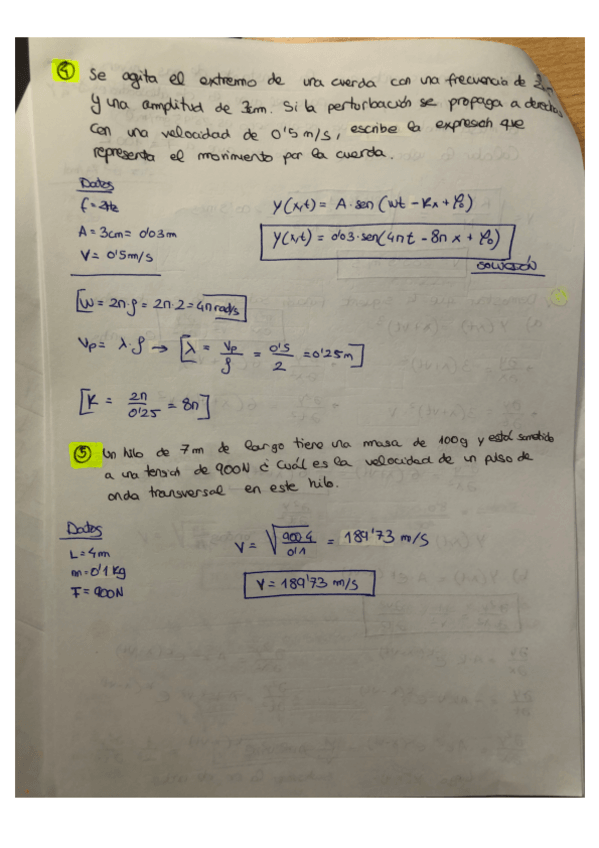 4 Se agita el extremo de una cuerda con una frecuencia de 2Hz
y una amplitud de 3cm. Si la perturbación se propaga a derechas
con una velocidad de 0'5 m/s, escribe la expresión que
representa el movimiento por la cuerda.
Datos
f = 2Hz
A = 3cm = 0'03m
V = 0'5m/s
Y(x,t) = A·sen(wt - Kx + φ₀)
Y(x,t) = 0'03·sen(4πt - 8πx + φ₀)
SOLUCIÓN
[W = 2π·f = 2π·2 = 4π rad/s]
Vp = λ·f → [λ = Vp/f = 0'5/2 = 0'25m]
[K = 2π/0'25 = 8π]
5 Un hilo de 7m de largo tiene una masa de 100g y está sometido
a una tensión de 900N ¿Cuál es la velocidad de un pulso de
onda transversal en este hilo.
Datos
L = 4m
m = 0'1 Kg
F = 900N
V = √(900·4/0'1) = 189'73 m/s
V = 189'73 m/s